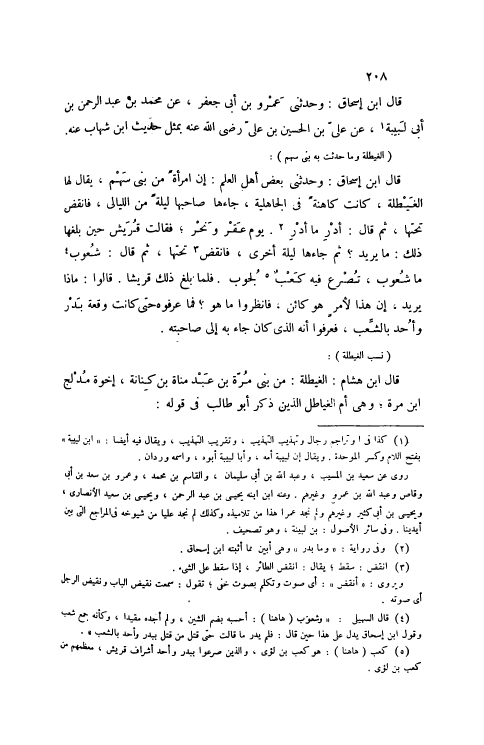 ٢٠٨
قال ابن إسحاق : وحدثنى عَمْرو بن أبى جعفر ، عن محمد بن عبد الرحمن بن
أبى لَبيبة١ ، عن علىّ بن الحسين بن علىّ رضى الله عنه بمثل حديث ابن شهاب عنه.
( الغيطلة وما حدثت به بنى سهم ) :
قال ابن إسحاق : وحدثنى بعض أهل العلم : إن امرأة من بنى سَهْم ، يقال لها
الغَيْطلة ، كانت كاهنة فى الجاهلية ، جاءها صاحبها ليلة من الليالى ، فانقض
تحتها ، ثم قال : أدْرِ ما أدْرِ ٢ . يوم عَقْر ونَحْر ؛ فقالت قُرَيش حين بلغها
ذلك : ما يريد ؟ ثم جاءها ليلة أخرى ، فانقض٣ تحتها ، ثم قال : شُعوب٤
ما شُعوب ، تُصْرع فيه كَعْبٌ ٥ لجُنوب . فلما بلغ ذلك قريشا . قالوا : ماذا
يريد ، إن هذا لأمر هو كائن ، فانظروا ما هو ؟ فما عرفوه حتى كانت وقعة بَدْر
وأُحد بالشِّعب ، فعرفوا أنه الذى كان جاء به إلى صاحبته .
( نسب الغيطلة ) :
قال ابن هشام : الغيطلة : من بنى مُرّة بن عَبْد مناة بن كِنانة ، إخوة مُدْلج
ابن مرة ؛ وهى أم الغياطل الذين ذكر أبو طالب فى قوله :
(١) كذا فى ا وتراجم رجال وتهذيب التهذيب ، وتقريب التهذيب ، ويقال فيه أيضا : « ابن لبيبة »
بفتح اللام وكسر الموحدة . ويقال إن لبيبة أمه ، وأبا لبيبة أبوه ، واسمه وردان .
روى عن سعيد بن المسيب ، وعبد الله بن أبى سليمان ، والقاسم بن محمد ، وعمرو بن سعد بن أبى
وقاص وعبد الله بن عمرو وغيرهم . وعنه ابن ابنه يحيى بن عبد الرحمن ، ويحيى بن سعيد الأنصارى ،
ويحيى بن أبى كثير وغيرهم ولم نجد عمرا هذا من تلاميذه وكذلك لم نجد عليا من شيوخه فى المراجع التى بين
أيدينا . وفى سائر الأصول : بن لبينة ، وهو تصحيف .
(٢) وفى رواية : « وما بدر » وهى أبين مما أثبته ابن إسحاق .
(٣) انقض : سقط ؛ يقال : انقض الطائر ، إذا سقط على الشىء .
ويروى : « أنقض » : أى صوت وتكلم بصوت خفى ؛ تقول : سمعت نقيض الباب ونقيض الرجل
أى صوته .
(٤) قال السهيل : « وشعوب ( هاهنا ) : أحسبه بضم الشين ، ولم أجده مقيدا ، وكأنه جمع شعب
وقول ابن إسحاق يدل على هذا حين قال : فلم يدر ما قالت حتى قتل من قتل ببدر وأحد بالشعب » .
(٥) كعب ( هاهنا ) : هو كعب بن لؤى ، والذين صرعوا ببدر وأحد أشراف قريش ، معظمهم من
كعب بن لؤى .